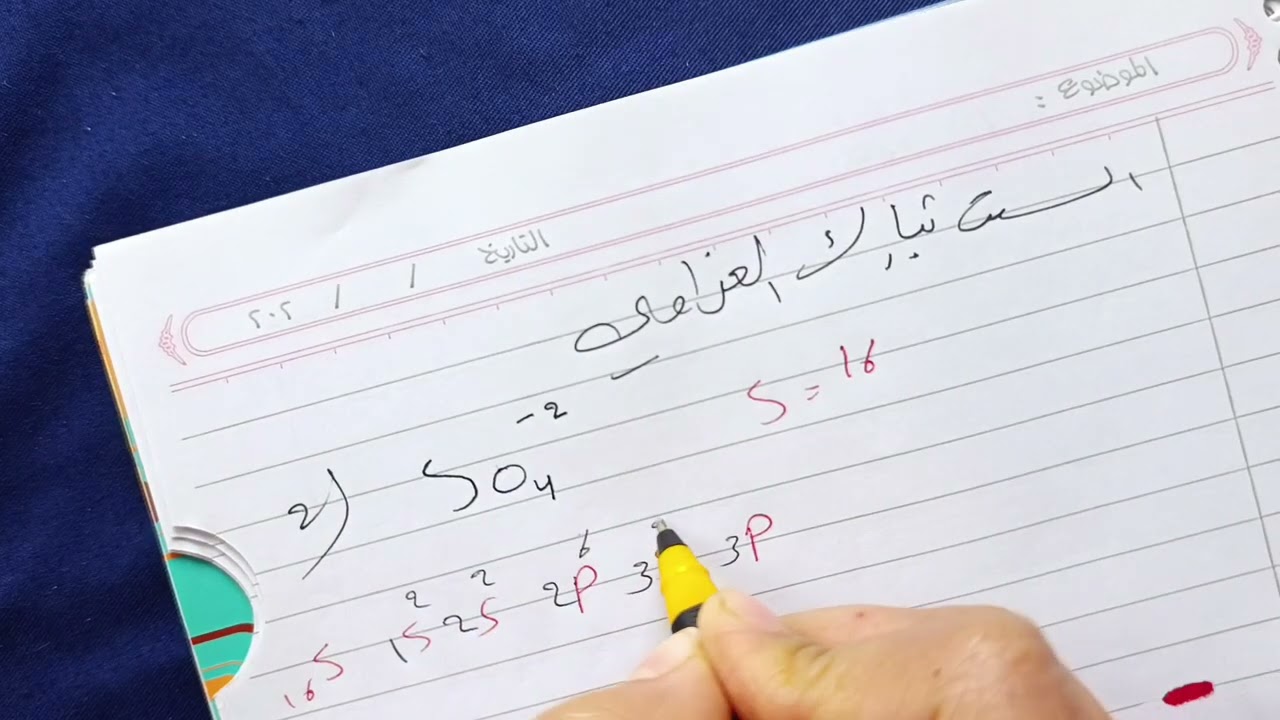 الموضوع :
التاريخ / / ٢٠٢
الست تبارك العزاوي
S = 16
2) SO₄⁻²
₁₆S 1S² 2S² 2P⁶ 3 3P